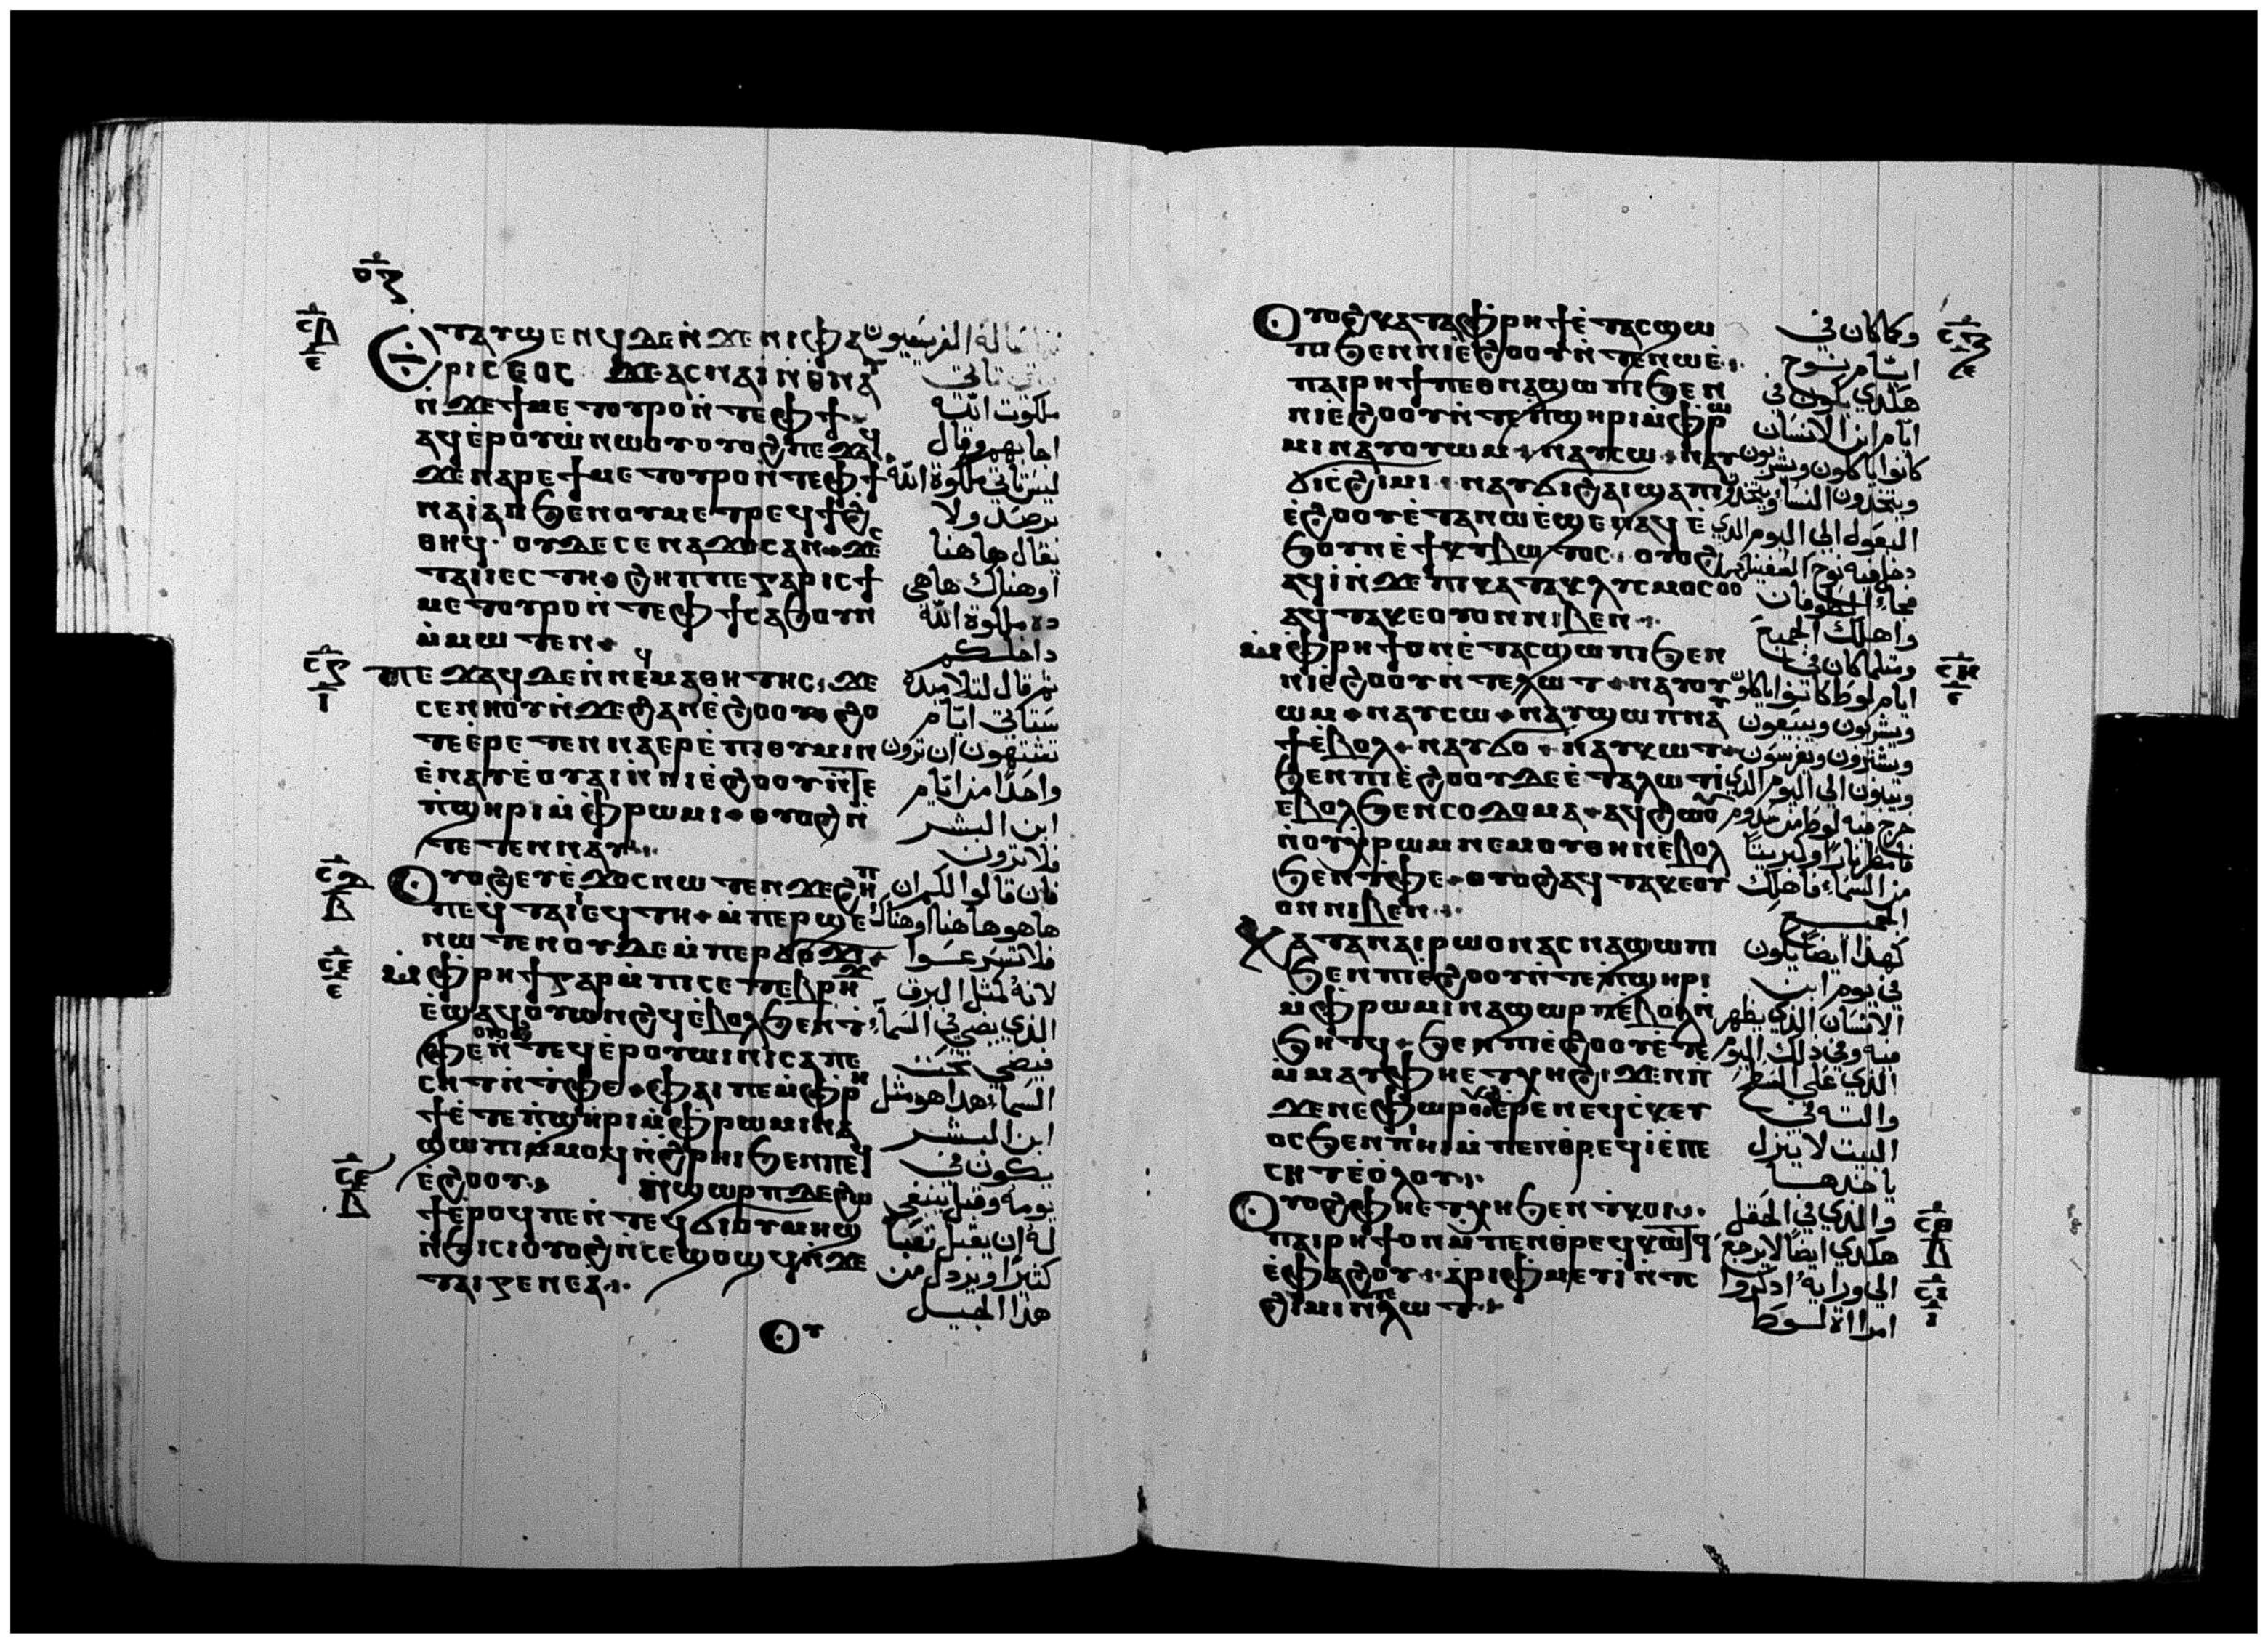 ⲉⲧⲁⲩϣⲉⲛϥ ⲇⲉ ⲛ̇ϫⲉⲛⲓⲫⲁ
ⲣⲓⲥⲉⲟⲥ ϫⲉⲁⲥⲛⲁⲓ ⲛ̇ⲑⲛⲁⲩ
ⲛ̇ϫⲉϯⲙⲉⲧⲟⲩⲣⲟ ⲛ̇ⲧⲉⲫϯ
ⲁϥⲉ̇ⲣⲟⲩⲱ̇ ⲛⲱⲟⲩ ⲟⲩⲟϩ ⲡⲉϫⲁϥ
ϫⲉⲛⲁⲣⲉϯⲙⲉⲧⲟⲩⲣⲟ ⲛ̇ⲧⲉⲫϯ
ⲛⲁⲓ̇ ⲁⲛ ϧⲉⲛⲟⲩⲙⲉⲧⲣⲉϥϯϩ
ⲑⲏϥ ⲟⲩⲇⲉ ⲥⲉⲛⲁϫⲟⲥ ⲁⲛ ϫⲉⲥ
ⲧⲁⲓ ⲓⲉ ⲥⲧⲏ ϩⲏⲡⲡⲉ ⲅⲁⲣ ⲓⲥϯ
ⲙⲉⲧⲟⲩⲣⲟ ⲛ̇ⲧⲉⲫϯ ⲥⲁϧⲟⲩⲛ
ⲙ̇ⲙⲱⲧⲉⲛ
ⲡⲉϫⲁϥ ⲇⲉ ⲛ̇ⲛⲉϥⲙⲁⲑⲏⲧⲏⲥ ϫⲉ
ⲥⲉⲛⲏⲟⲩ ⲛ̇ϫⲉϩⲁⲛⲉ̇ϩⲟⲟⲩ ϩⲟ
ⲧⲉ ⲉ̇ⲣⲉⲧⲉⲛⲛⲁⲉⲣⲉ̇ⲡⲓⲑⲩⲙⲓⲛ
ⲉ̇ⲛⲁⲩ ⲉ̇ⲟⲩⲁⲓ ⲛ̇ⲛⲓⲉ̇ϩⲟⲟⲩ ⲛ̇ⲧⲉ
ⲡ̇ϣⲏⲣⲓ ⲙ̇ⲫⲣⲱⲙⲓ ⲟⲩⲟϩ ⲛ̇
ⲧⲉⲧⲉⲛⲛⲁⲩ
ⲟⲩⲟϩ ⲉⲩⲉ̇ϫⲟⲥ ⲛⲱⲧⲉⲛ ϫⲉϩⲏⲡ
ⲡⲉ ϥⲧⲁⲓ ⲓⲉ ϥⲧⲏ ⲙ̇ⲡⲉⲣϣⲉ
ⲛⲱⲧⲉⲛ ⲟⲩⲇⲉ ⲙ̇ⲡⲉⲣϭⲟϫⲓ
ⲙ̇ⲫⲣⲏϯ ⲅⲁⲣ ⲙ̇ⲡⲓⲥⲉⲧⲉⲃⲣⲏϫ
ⲉ̇ϣⲁϥⲟⲩⲱⲛϩϥ ⲉ̇ⲃⲟⲗ ϧⲉⲛⲧ̇
ⲫⲉ ⲟⲩⲟϩ ⲛ̇ⲧⲉϥⲉ̇ⲣⲟⲩⲱⲓⲛⲓ ⲥⲁⲡⲉ
ⲥⲏⲧ ⲛ̇ⲧ̇ⲫⲉ ⲫⲁⲓ ⲡⲉ ⲙ̇ⲫⲣⲏ
ϯ ⲉ̇ⲧⲉⲡ̇ϣⲏⲣⲓ ⲙ̇ⲫⲣⲱⲙⲓ ⲛⲁ
ϣⲱⲡⲓ ⲙ̇ⲙⲟϥ ⲛ̇ϩⲣⲏⲓ ϧⲉⲛⲡⲉϥ
ⲉ̇ϩⲟⲟⲩ ⲛ̇ϣⲱⲣⲡ ⲇⲉ ϩⲱ
ϯ ⲉ̇ⲣⲟϥ ⲡⲉ ⲛ̇ⲧⲉϥϭⲓ ⲟⲩⲙⲏϣ
ⲛ̇ϧⲓⲥⲓ ⲟⲩⲟϩ ⲛ̇ⲥⲉϣⲟϣϥ ⲛ̇ϫⲉ
ⲧⲁⲓⲅⲉⲛⲉⲁ̇
ⲟⲩ
الفريسيون
تاتي
ملكوت الله
اجابهم وقال
ليس تاتي ملكوة الله
برصد ولا
يقال هاهنا
او هناك هاهي
ملكوة الله
داخلكم
ثم قال لتلاميذه
ستاتي ايام
تشتهون ان ترون
واحدا من ايام
ابن البشر
فلا ترون
فان قالوا لكم ان
هاهو هاهنا او هناك
فلا تسرعوا
لانه كمثل البرق
الذي يضي في السما
فيضي تحت
السما هذا هو مثل
ابن البشر
يكون في
يومه وقبل ينبغي
له ان يقبل تعبا
كثيرا ويرذل من
هذا الجيل
ⲟⲩⲟϩ ⲕⲁⲧⲁⲫⲣⲏϯ ⲉ̇ⲧⲁⲥϣⲱ
ⲡⲓ ϧⲉⲛⲛⲓⲉ̇ϩⲟⲟⲩ ⲛ̇ⲧⲉⲛⲱⲉ̇
ⲡⲁⲓⲣⲏϯ ⲡⲉⲑⲛⲁϣⲱⲡⲓ ϧⲉⲛ
ⲛⲓⲉ̇ϩⲟⲟⲩ ⲛ̇ⲧⲉⲡϣⲏⲣⲓ ⲙ̇ⲫⲣⲱ
ⲙⲓ ⲛⲁⲩⲟⲩⲱⲙ ⲛⲁⲩⲥⲱ ⲛⲁⲩ
ϭⲓⲥϩⲓⲙⲓ ⲛⲁⲩϭⲓϩⲁⲓ ϣⲁⲡⲓ
ⲉ̇ϩⲟⲟⲩ ⲉ̇ⲧⲁⲛⲱⲉ̇ ϣⲉⲛⲁϥ ⲉ̇
ϧⲟⲩⲛ ⲉ̇ϯⲕⲩⲃⲱⲧⲟⲥ ⲟⲩⲟϩ
ⲁϥⲓ̇ ⲛ̇ϫⲉⲡⲓⲕⲁⲧⲁⲕⲗⲩⲥⲙⲟⲥ ⲟⲩⲟ
ⲁϥⲧⲁⲕⲉ ⲟⲩⲟⲛ ⲛⲓⲃⲉⲛ
ⲙ̇ⲫⲣⲏϯ ⲟⲛ ⲉ̇ⲧⲁⲥϣⲱⲡⲓ ϧⲉⲛ
ⲛⲓⲉ̇ϩⲟⲟⲩ ⲛ̇ⲧⲉⲗⲱⲧ ⲛⲁⲩⲟⲩ
ⲱⲙ ⲛⲁⲩⲥⲱ ⲛⲁⲩϣⲱⲡ ⲛⲁⲩ
ϯ ⲉ̇ⲃⲟⲗ ⲛⲁⲩϭⲟ ⲛⲁⲩⲕⲱⲧ
ϧⲉⲛⲡⲓⲉ̇ϩⲟⲟⲩ ⲇⲉ ⲉ̇ⲧⲁⲗⲱⲧ ⲓ̇
ⲉ̇ⲃⲟⲗ ϧⲉⲛⲥⲟⲇⲟⲙⲁ ⲁϥϩⲱⲟⲩ
ⲛ̇ⲟⲩⲭⲣⲱⲙ ⲛⲉⲙⲟⲩⲑⲏⲛ ⲉ̇ⲃⲟⲗ
ϧⲉⲛⲧ̇ⲫⲉ ⲟⲩⲟϩ ⲁϥⲧⲁⲕⲉ ⲟⲩ
ⲟⲛ ⲛⲓⲃⲉⲛ
ⲕⲁⲧⲁⲛⲁⲓⲣⲱ ⲟⲛ ⲁⲥⲛⲁϣⲱⲡⲓ
ϧⲉⲛⲡⲓⲉ̇ϩⲟⲟⲩ ⲛ̇ⲧⲉⲡ̇ϣⲏⲣⲓ
ⲙ̇ⲫⲣⲱⲙⲓ ⲛⲁϭⲱⲣⲡ ⲉ̇ⲃⲟⲗ ⲛ̇
ϧⲏⲧϥ ϧⲉⲛⲡⲓⲉ̇ϩⲟⲟⲩ ⲉ̇ⲧⲉ
ⲙ̇ⲙⲁⲩ ⲫⲏⲉⲧⲭⲏ ϩⲓϫⲉⲛⲡ̇
ϫⲉⲛⲉⲫⲱⲣ ⲟⲩⲟϩ ⲉ̇ⲣⲉⲛⲉϥⲥ̇ⲕⲉⲩ
ⲟⲥ ϧⲉⲛⲡ̇ⲏⲓ ⲙ̇ⲡⲉⲛⲑⲣⲉϥⲓ̇ ⲉ̇ⲡⲉ
ⲥⲏⲧ ⲉ̇ⲟⲗⲟⲩ
ⲟⲩⲟϩ ⲫⲏⲉⲧⲭⲏ ϧⲉⲛⲧ̇ⲕⲟⲓ
ⲡⲁⲓⲣⲏϯ ⲟⲛ ⲙ̇ⲡⲉⲛⲑⲣⲉϥⲕⲟⲧϥ
ⲉ̇ⲫⲁϩⲟⲩ ⲁ̇ⲣⲓⲫⲙⲉⲩⲓ̇ ⲛ̇ⲧ
ϩⲓⲙⲓ ⲛ̇ⲗⲱⲧ
وكما كان في
ايام نوح
هكذي يكون في
ايام ابن الانسان
كانوا ياكلون ويشربون
ويتخذون النسا ويتخذن
البعوله الي اليوم الذي
دخل فيه نوح السفينه
فجاء الطوفان
واهلك الجميع
ومثلما كان في
ايام لوط كانوا ياكلون
ويشربون ويبيعون
ويشترون ويغرسون
ويبنون الي اليوم الذي
خرج فيه لوط من سدوم
فامطر نارا وكبريتا
من السماء فاهلك
الجميع
كهذا ايضا يكون
في يوم ابن
الانسان الذي يظهر
فيه وفي ذلك اليوم
الذي علي السطح
والته في
البيت لا ينزل
ياخذها
والذي في الحقل
هكذي ايضا لا يرجع
الي ورايه اذكروا
امراة لوط